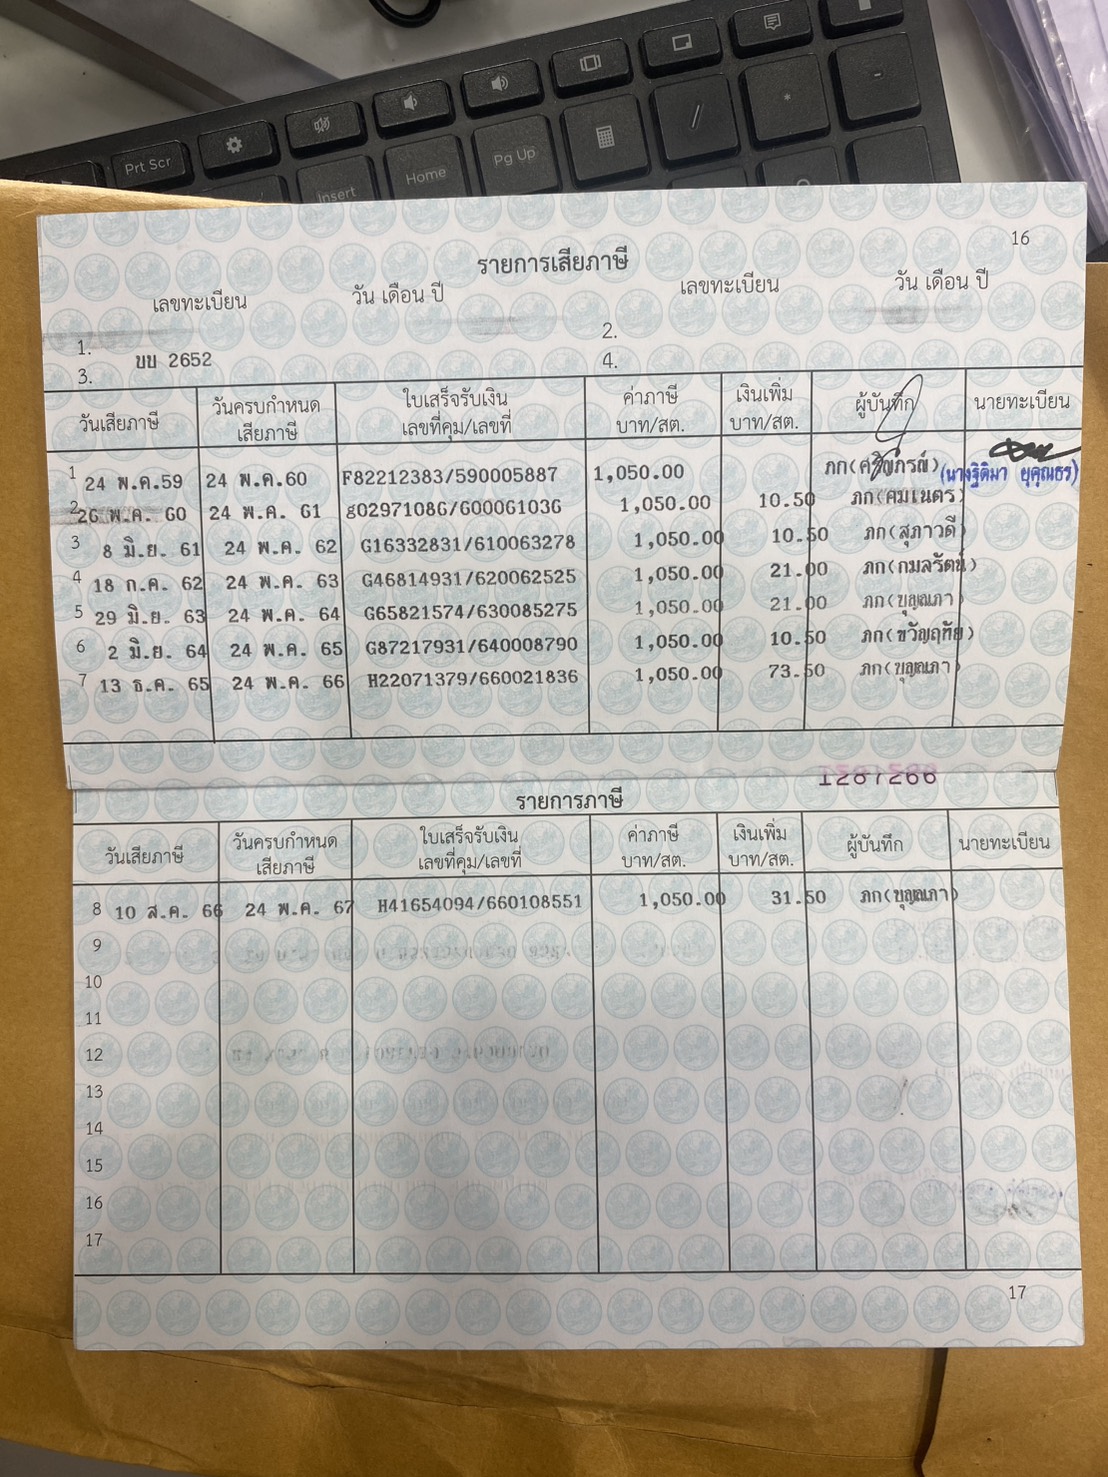 Prt Scr
Insert
Home
Pg Up
16
รายการเสียภาษี
เลขทะเบียน วัน เดือน ปี เลขทะเบียน วัน เดือน ปี
1. 2.
ขบ 2652
3. 4.
วันเสียภาษี วันครบกำหนดเสียภาษี ใบเสร็จรับเงิน เลขที่คุม/เลขที่ ค่าภาษี บาท/สต. เงินเพิ่ม บาท/สต. ผู้บันทึก นายทะเบียน
1 24 พ.ค.59 24 พ.ค.60 F82212383/590005887 1,050.00 ภก( (นางฐิติมา ยุคุณธร)
2 26 พ.ค. 60 24 พ.ค. 61 g02971086/600061036 1,050.00 10.50 ภก(คมเนตร)
3 8 มิ.ย. 61 24 พ.ค. 62 G16332831/610063278 1,050.00 10.50 ภก(สุภาวดี)
4 18 ก.ค. 62 24 พ.ค. 63 G46814931/620062525 1,050.00 21.00 ภก(กมลรัตน์)
5 29 มิ.ย. 63 24 พ.ค. 64 G65821574/630085275 1,050.00 21.00 ภก(บุญณภา)
6 2 มิ.ย. 64 24 พ.ค. 65 G87217931/640008790 1,050.00 10.50 ภก(ขวัญฤทัย)
7 13 ธ.ค. 65 24 พ.ค. 66 H22071379/660021836 1,050.00 73.50 ภก(บุญณภา)
รายการภาษี
วันเสียภาษี วันครบกำหนดเสียภาษี ใบเสร็จรับเงิน เลขที่คุม/เลขที่ ค่าภาษี บาท/สต. เงินเพิ่ม บาท/สต. ผู้บันทึก นายทะเบียน
8 10 ส.ค. 66 24 พ.ค. 67 H41654094/660108551 1,050.00 31.50 ภก(บุญณภา)
9
10
11
12
13
14
15
16
17
17